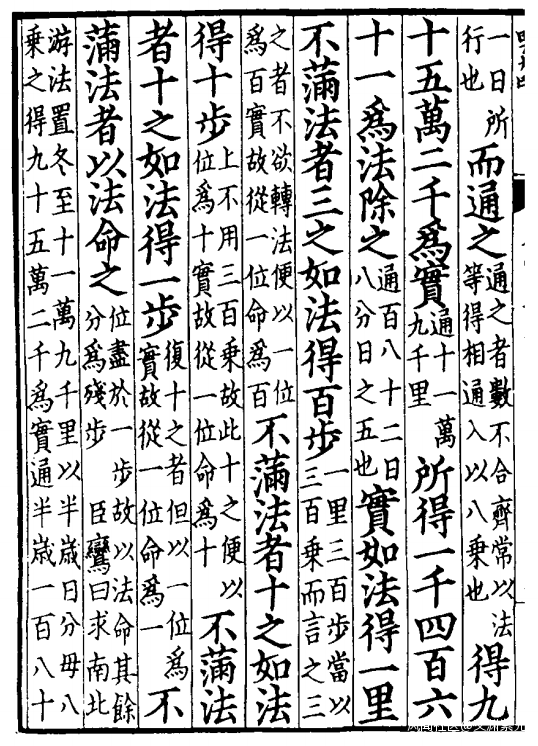 一日所行也而通之通之者數不合齊常以法等得相通入以八乘也得九
十五萬二千爲實通十一萬九千里所得一千四百六
十一爲法除之通百八十二日八分日之五也實如法得一里
不滿法者三之如法得百步一里三百步當以三百乘而言之三
之者不欲轉法便以一位爲百實故從一位命爲百不滿法者十之如法
得十步上不用三百乘故此十之便以位爲十實故從一位命爲十不滿法
者十之如法得一步復十之者但以一位爲實故從一位命爲一不
滿法者以法命之位盡於一步故以法命其餘分爲殘步 臣鸞曰求南北
游法置冬至十一萬九千里以半歲日分母八乘之得九十五萬二千爲實通半歲一百八十